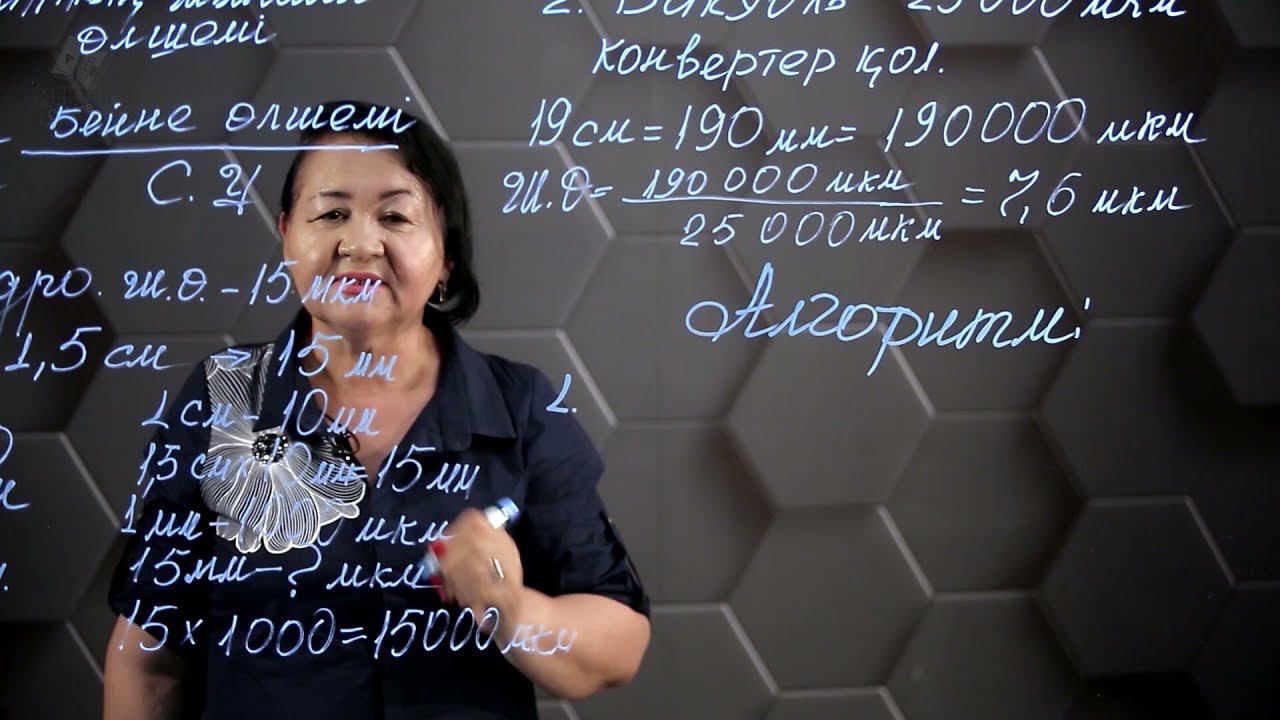 өлшемі
Бейне өлшемі
С. Ү
дро. Ж.Ө. - 15 мкм
1,5 см → 15 мм
1 см - 10 мм
1,5 см × 10 мм = 15 мм
1 мм - 1000 мкм
15 мм - ? мкм
15 × 1000 = 15000 мкм
2. Вакуоль 25 000 мкм
Конвертер қол.
19 см = 190 мм = 190000 мкм
Ж.Ө = 190 000 мкм / 25 000 мкм = 7,6 мкм
Алгоритм:
1.